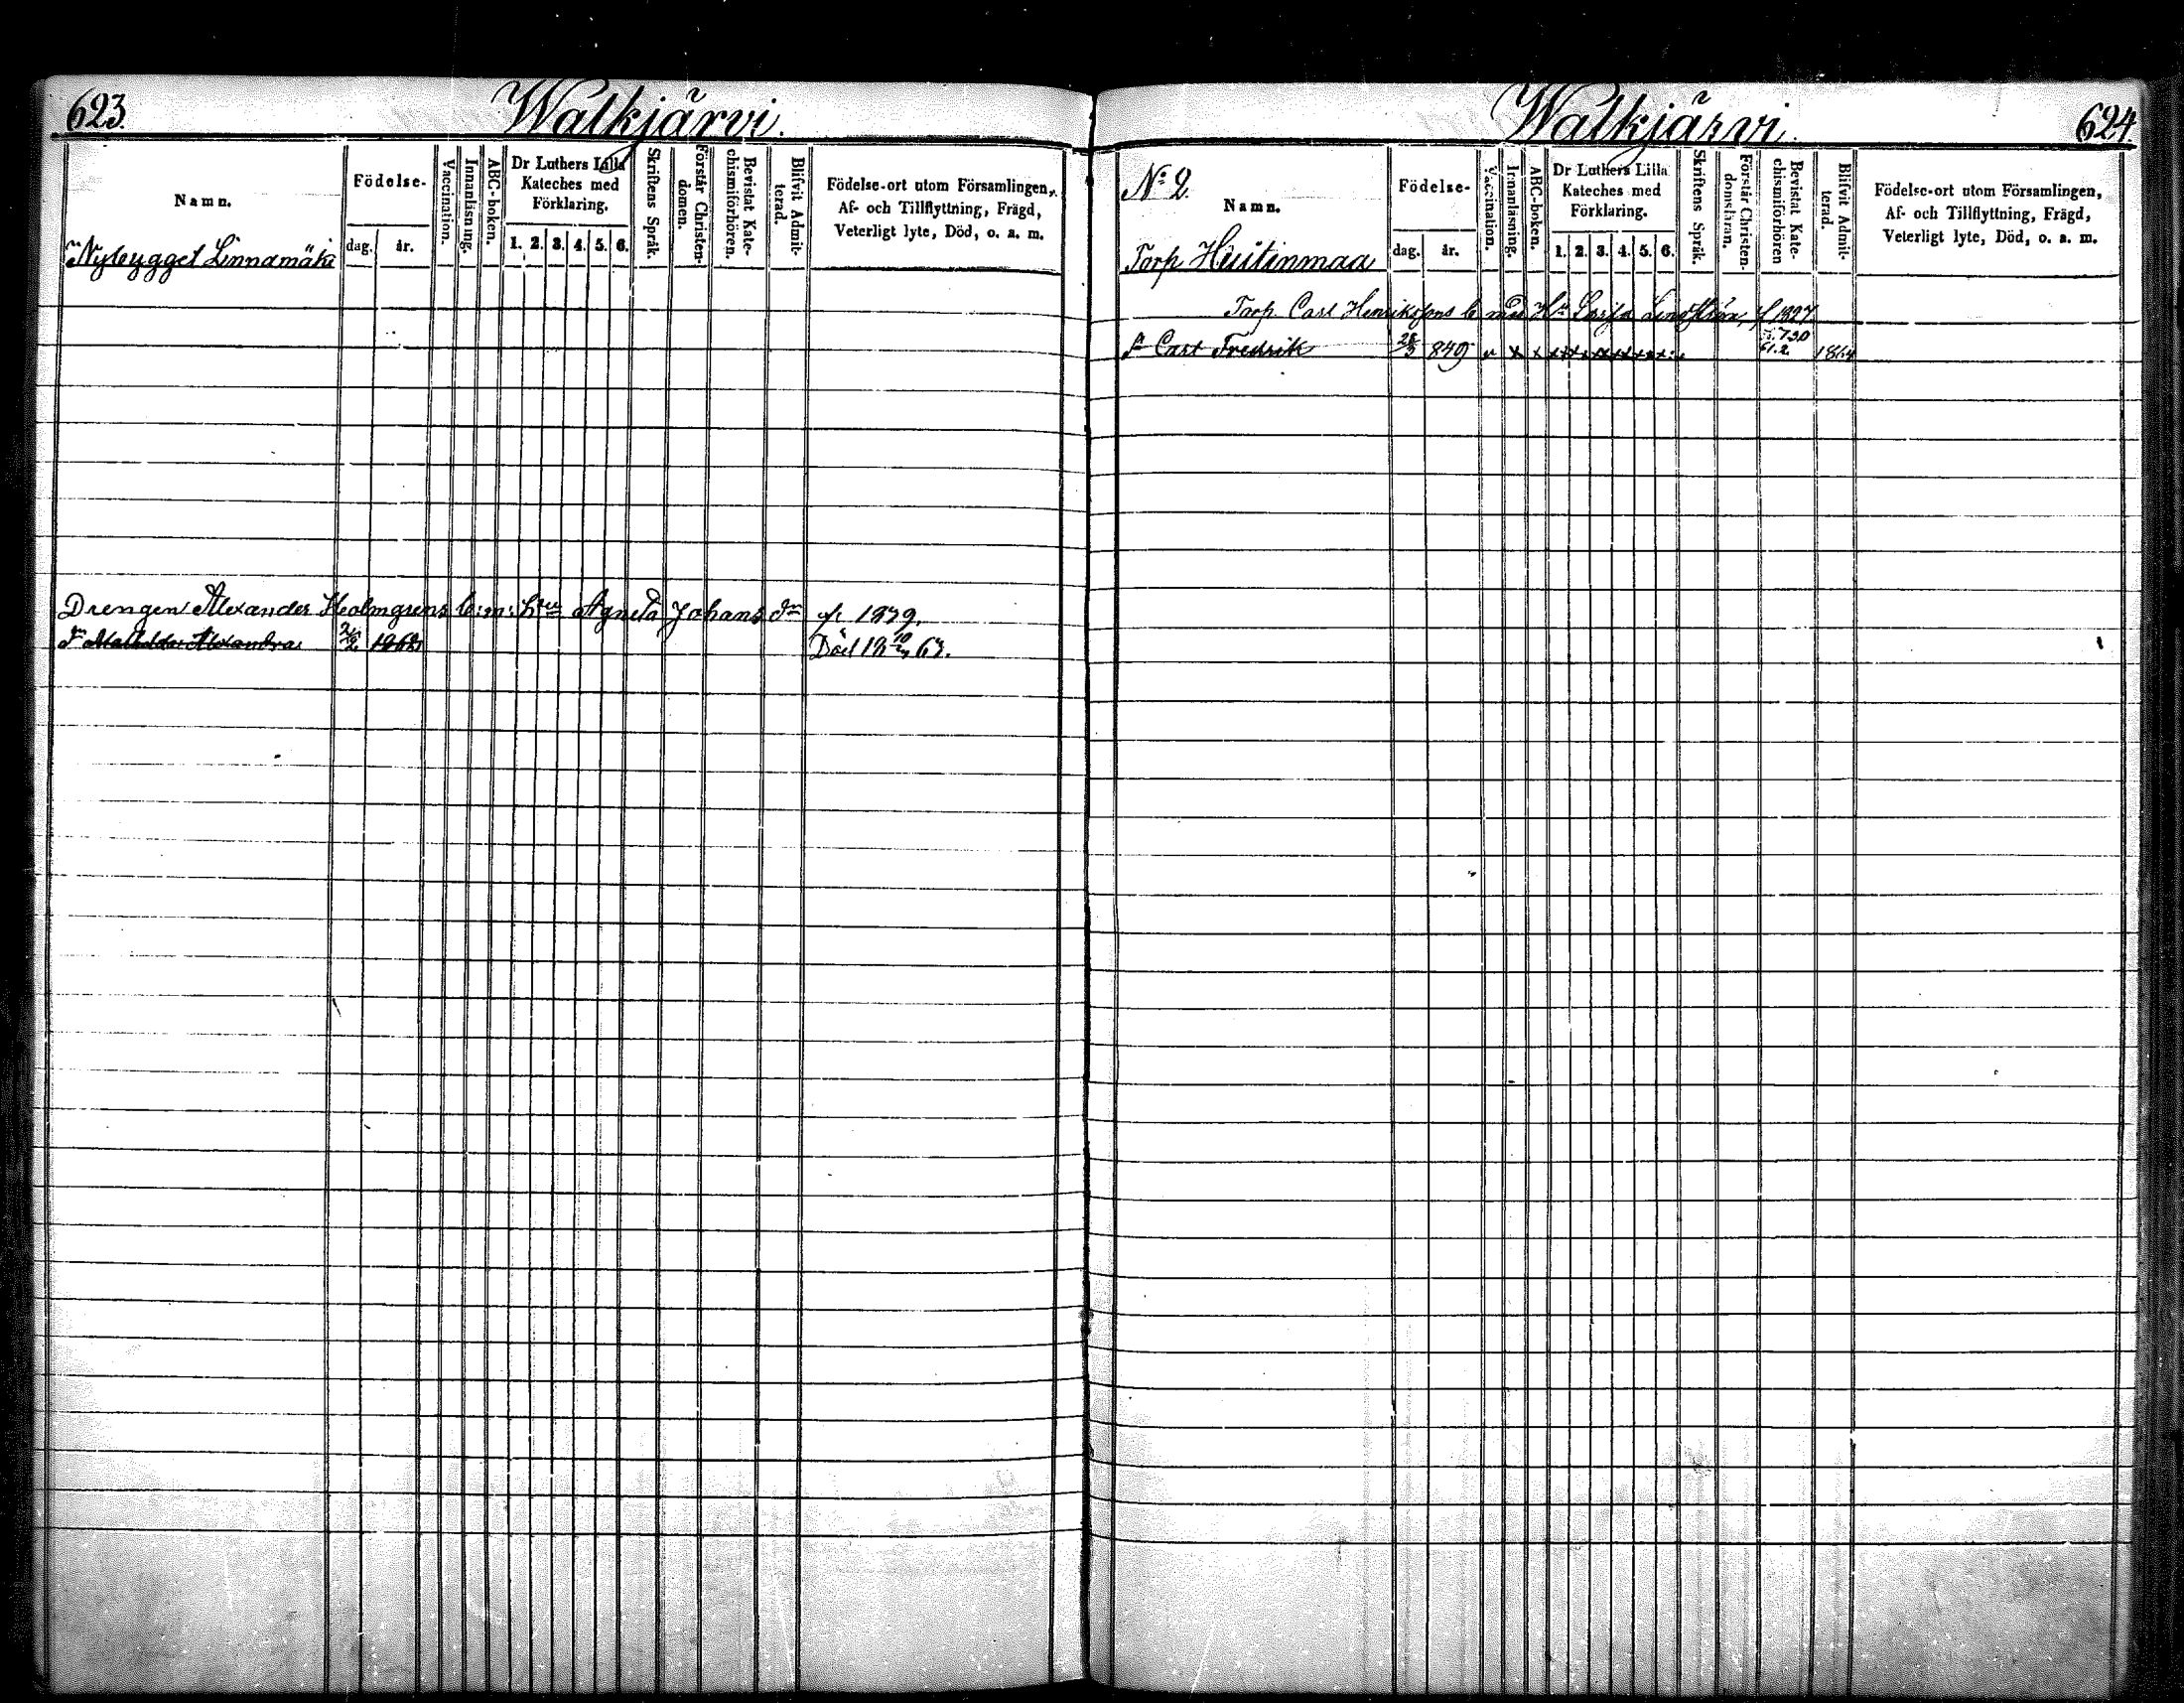 623.
Walkjärvi.
Namn.
Födelse-
dag.
år.
Vaccination.
Innanläsning.
ABC-boken.
Dr Luthers Lilla
Kateches med
Förklaring.
1. 2. 3. 4. 5. 6.
Skriftens Språk.
Förstår Christen-
domen.
Bevistat Kate-
chismiförhören.
Blifvit Admit-
terad.
Födelse-ort utom Församlingen,
Af- och Tillflyttning, Frägd,
Veterligt lyte, Död, o. a. m.
Nybygget Linnamäki
Drengen Alexander Holmgrens b:m: Agneta Johans dr f. 1879.
Alexandra Död 18 67.
Walkjärvi.
624.
No 2.
Namn.
Torp Huitinmaa
Födelse-
dag.
år.
Vaccination.
Innanläsning.
ABC-boken.
Dr Luthers Lilla
Kateches med
Förklaring.
1. 2. 3. 4. 5. 6.
Skriftens Språk.
Förstår Christen-
domsläran.
Bevistat Kate-
chismiförhören
Blifvit Admit-
terad.
Födelse-ort utom Församlingen,
Af- och Tillflyttning, Frägd,
Veterligt lyte, Död, o. a. m.
Torp. Carl Henrikssons b med
Carl Fredrik 849 x x 61.2. 1864